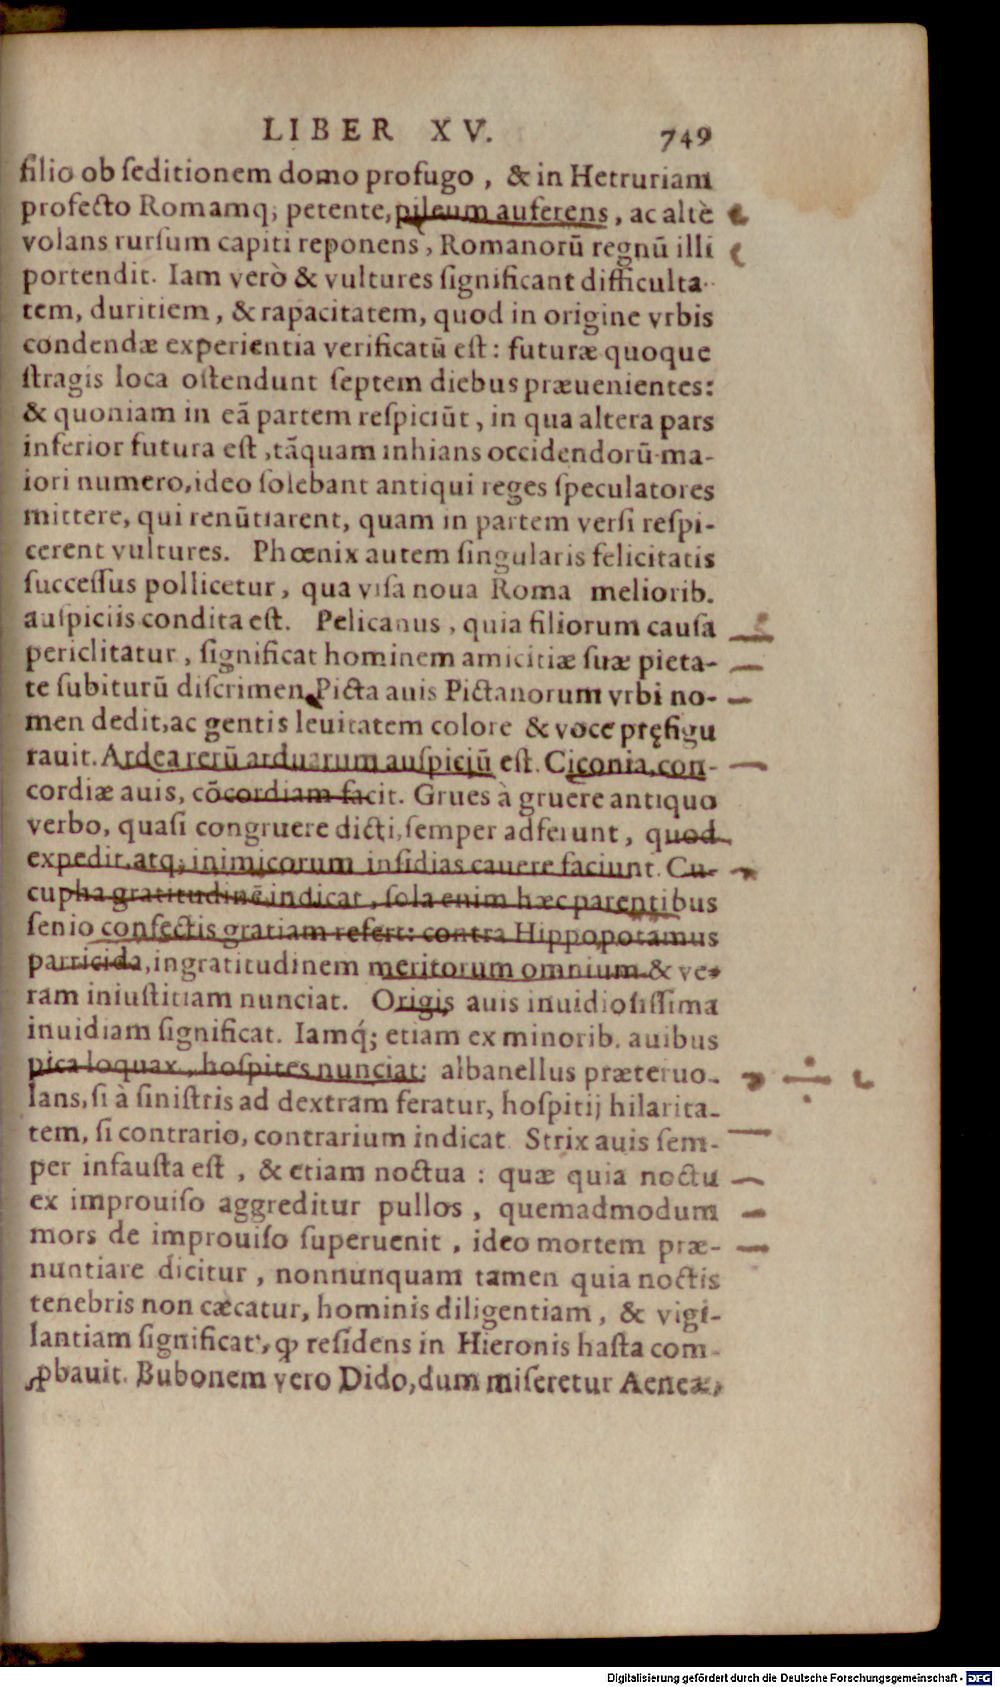 LIBER XV. 749
filio ob ſeditionem domo profugo, & in Hetruriam
profecto Romamq; petente, pileum auferens, ac altè
volans rurſum capiti reponens, Romanorū regnū illi
portendit. Iam verò & vultures ſignificant difficulta-
tem, duritiem, & rapacitatem, quod in origine vrbis
condendæ experientia verificatū eſt: futuræ quoque
ſtragis loca oſtendunt ſeptem diebus præuenientes:
& quoniam in eā partem reſpiciūt, in qua altera pars
inferior futura eſt, tāquam inhians occidendorū ma-
iori numero, ideo ſolebant antiqui reges ſpeculatores
mittere, qui renūtiarent, quam in partem verſi reſpi-
cerent vultures. Phœnix autem ſingularis felicitatis
ſucceſſus pollicetur, qua viſa noua Roma meliorib.
auſpiciis condita eſt. Pelicanus, quia filiorum cauſa
periclitatur, ſignificat hominem amicitiæ ſuæ pieta-
te ſubiturū diſcrimen. Picta auis Pictanorum vrbi no-
men dedit, ac gentis leuitatem colore & voce pręfigu
rauit. Ardea rerū arduarum auſpiciū eſt. Ciconia, con-
cordiæ auis, cōcordiam facit. Grues à gruere antiquo
verbo, quaſi congruere dicti, ſemper adferunt, quod
expedit, atq; inimicorum inſidias cauere faciunt. Cu-
cupha gratitudinē indicat, ſola enim hæc parentibus
ſenio confectis gratiam refert: contra Hippopotamus
parricida, ingratitudinem meritorum omnium & ve-
ram iniuſtitiam nunciat. Origis auis inuidioſiſſima
inuidiam ſignificat. Iamq́; etiam ex minorib. auibus
pica loquax, hoſpites nunciat: albanellus præteruo-
lans, ſi à ſiniſtris ad dextram feratur, hoſpitij hilarita-
tem, ſi contrario, contrarium indicat. Strix auis ſem-
per infauſta eſt, & etiam noctua: quæ quia noctu
ex improuiſo aggreditur pullos, quemadmodum
mors de improuiſo ſuperuenit, ideo mortem præ-
nuntiare dicitur, nonnunquam tamen quia noctis
tenebris non cæcatur, hominis diligentiam, & vigi-
lantiam ſignificat, ꝙ reſidens in Hieronis haſta com-
ꝓbauit. Bubonem vero Dido, dum miſeretur Aeneæ,
Digitalisierung gefördert durch die Deutsche Forschungsgemeinschaft - DFG